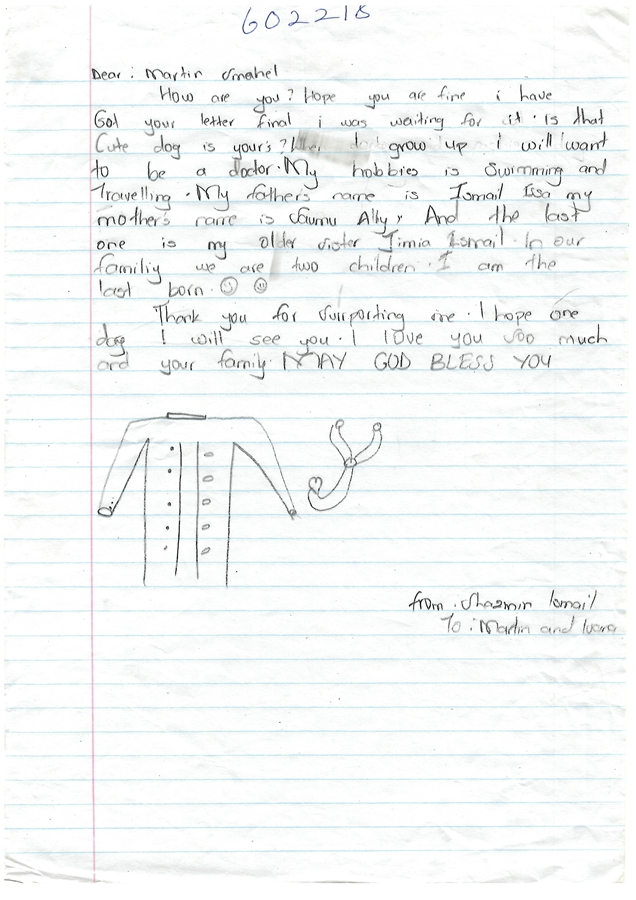 602218
Dear : Martin Smahel
How are you? Hope you are fine i have
Got your letter final i was waiting for it. Is that
Cute dog is your's? When I grow up i will want
to be a doctor. My hobbies is Swimming and
Travelling. My father's name is Ismail Issa my
mother's name is Saumu Ally, And the last
one is my older sister Jimia Ismail. In our
familiy we are two children. I am the
last born.
Thank you for Surrporting me. I hope one
dag I will see you. I love you soo much
and your family. MAY GOD BLESS YOU
from. Shazmin Ismail
To : Martin and